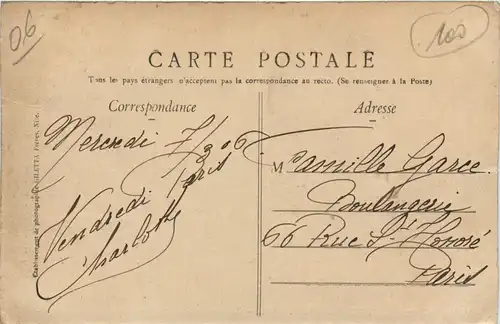 06
100
CARTE POSTALE
Tous les pays étrangers n'acceptent pas la correspondance au recto. (Se renseigner à la Poste)
Correspondance
Adresse
Etablissement de photographie GILETTA Frères, Nice.
Mercredi 7/3 06
Paris
Vendredi
Charlotte
M Camille Garce
Boulangerie
66 Rue St Honoré
Paris